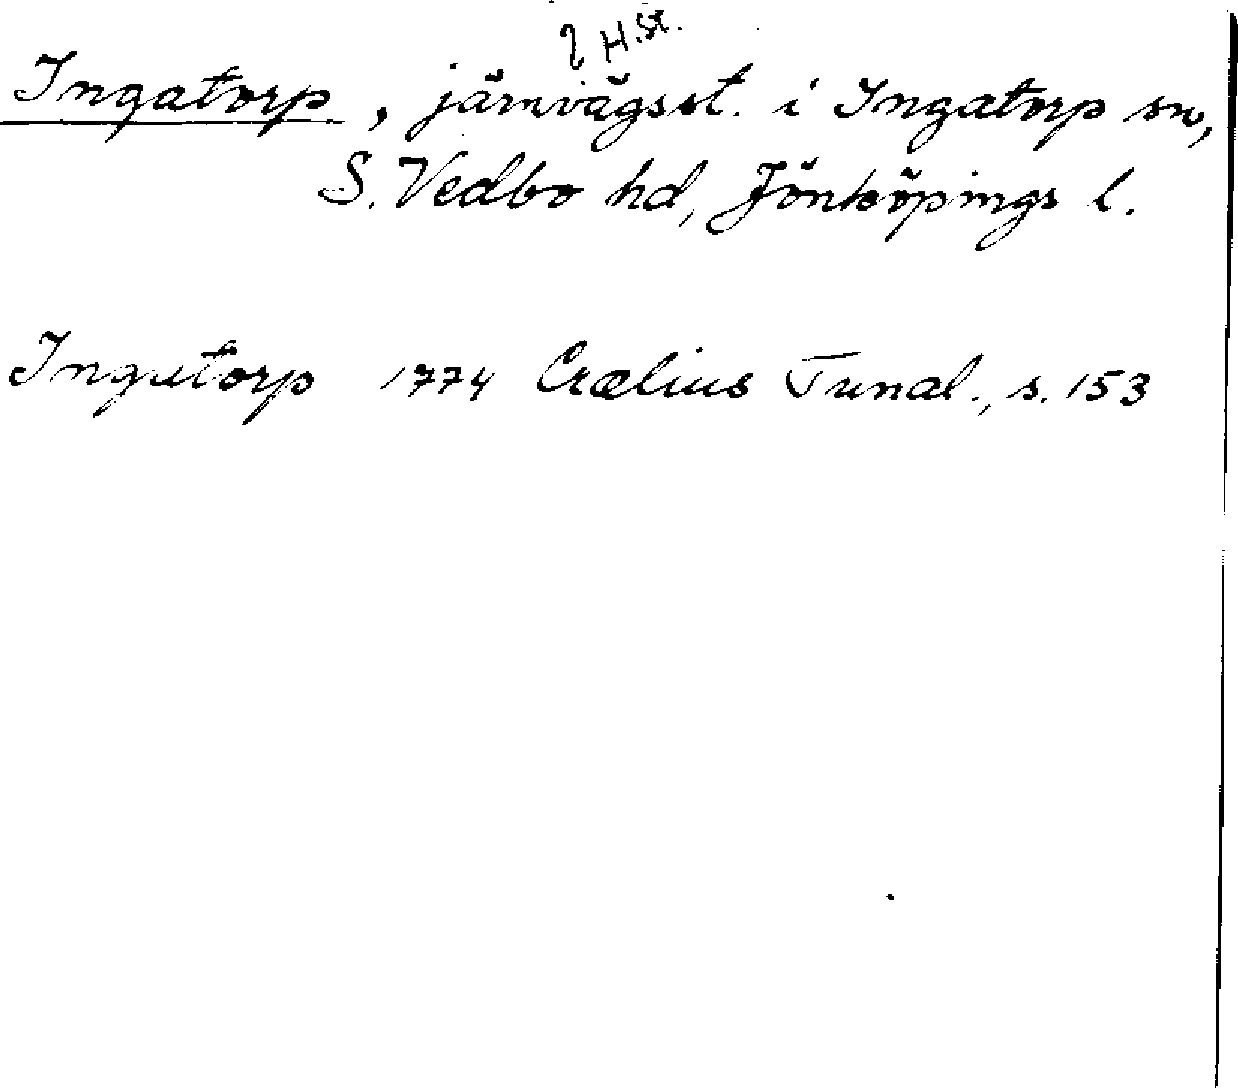 H.St.
Ingatorp, järnvägsst. i Ingatorp sn,
S. Vedbo hd, Jönköpings l.
Ingatorp 1774 Crælius Tunal., s. 153